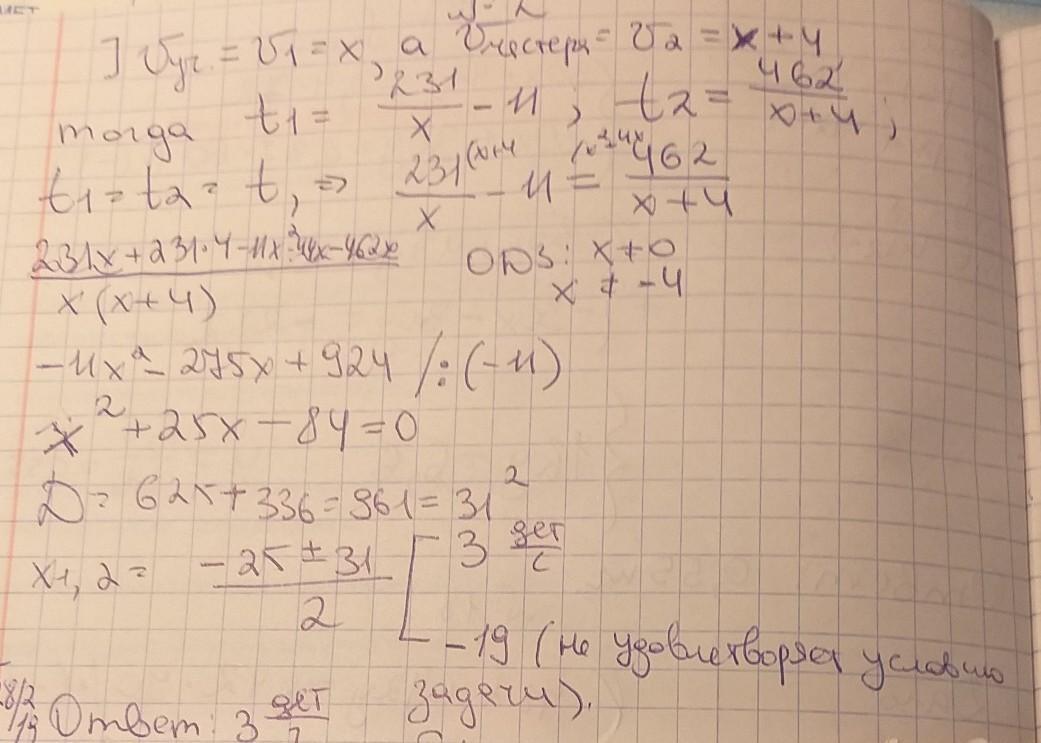 ] Vуч. = V1 = x, а Vмастера = V2 = x+4
тогда t1 = 231/x - 11 ; t2 = 462/(x+4) ;
t1 = t2 = t, => 231(x+4/x - 11(x²+4x = 462/(x+4)
(231x+231·4-11x²-44x-462x)/(x(x+4)) ОДЗ: x≠0
x ≠ -4
-11x² - 275x + 924 /:(-11)
x² + 25x - 84 = 0
D = 625+336 = 961 = 31²
x1,2 = (-25 ± 31)/2 [ 3 дет/с
-19 (не удовлетворяет условию
задачи).
Ответ: 3 дет